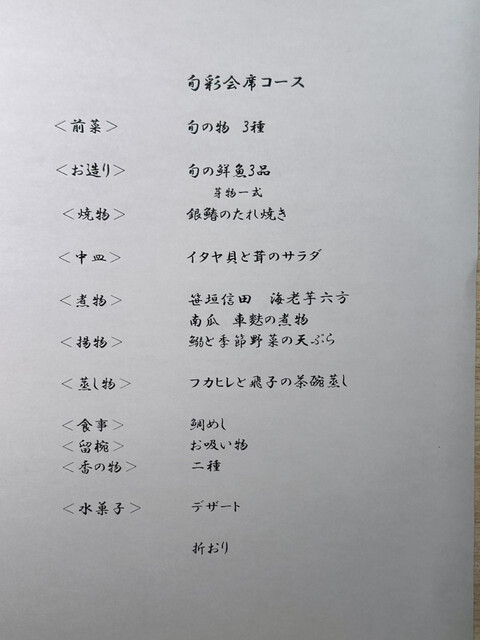 旬彩会席コース
＜前菜＞ 旬の物 3種
＜お造り＞ 旬の鮮魚3品
芽物一式
＜焼物＞ 銀鰆のたれ焼き
＜中皿＞ イタヤ貝と茸のサラダ
＜煮物＞ 笹垣信田 海老芋六方
南瓜 車麩の煮物
＜揚物＞ 鰯と季節野菜の天ぷら
＜蒸し物＞ フカヒレと飛子の茶碗蒸し
＜食事＞ 鯛めし
＜留椀＞ お吸い物
＜香の物＞ 二種
＜水菓子＞ デザート
折おり